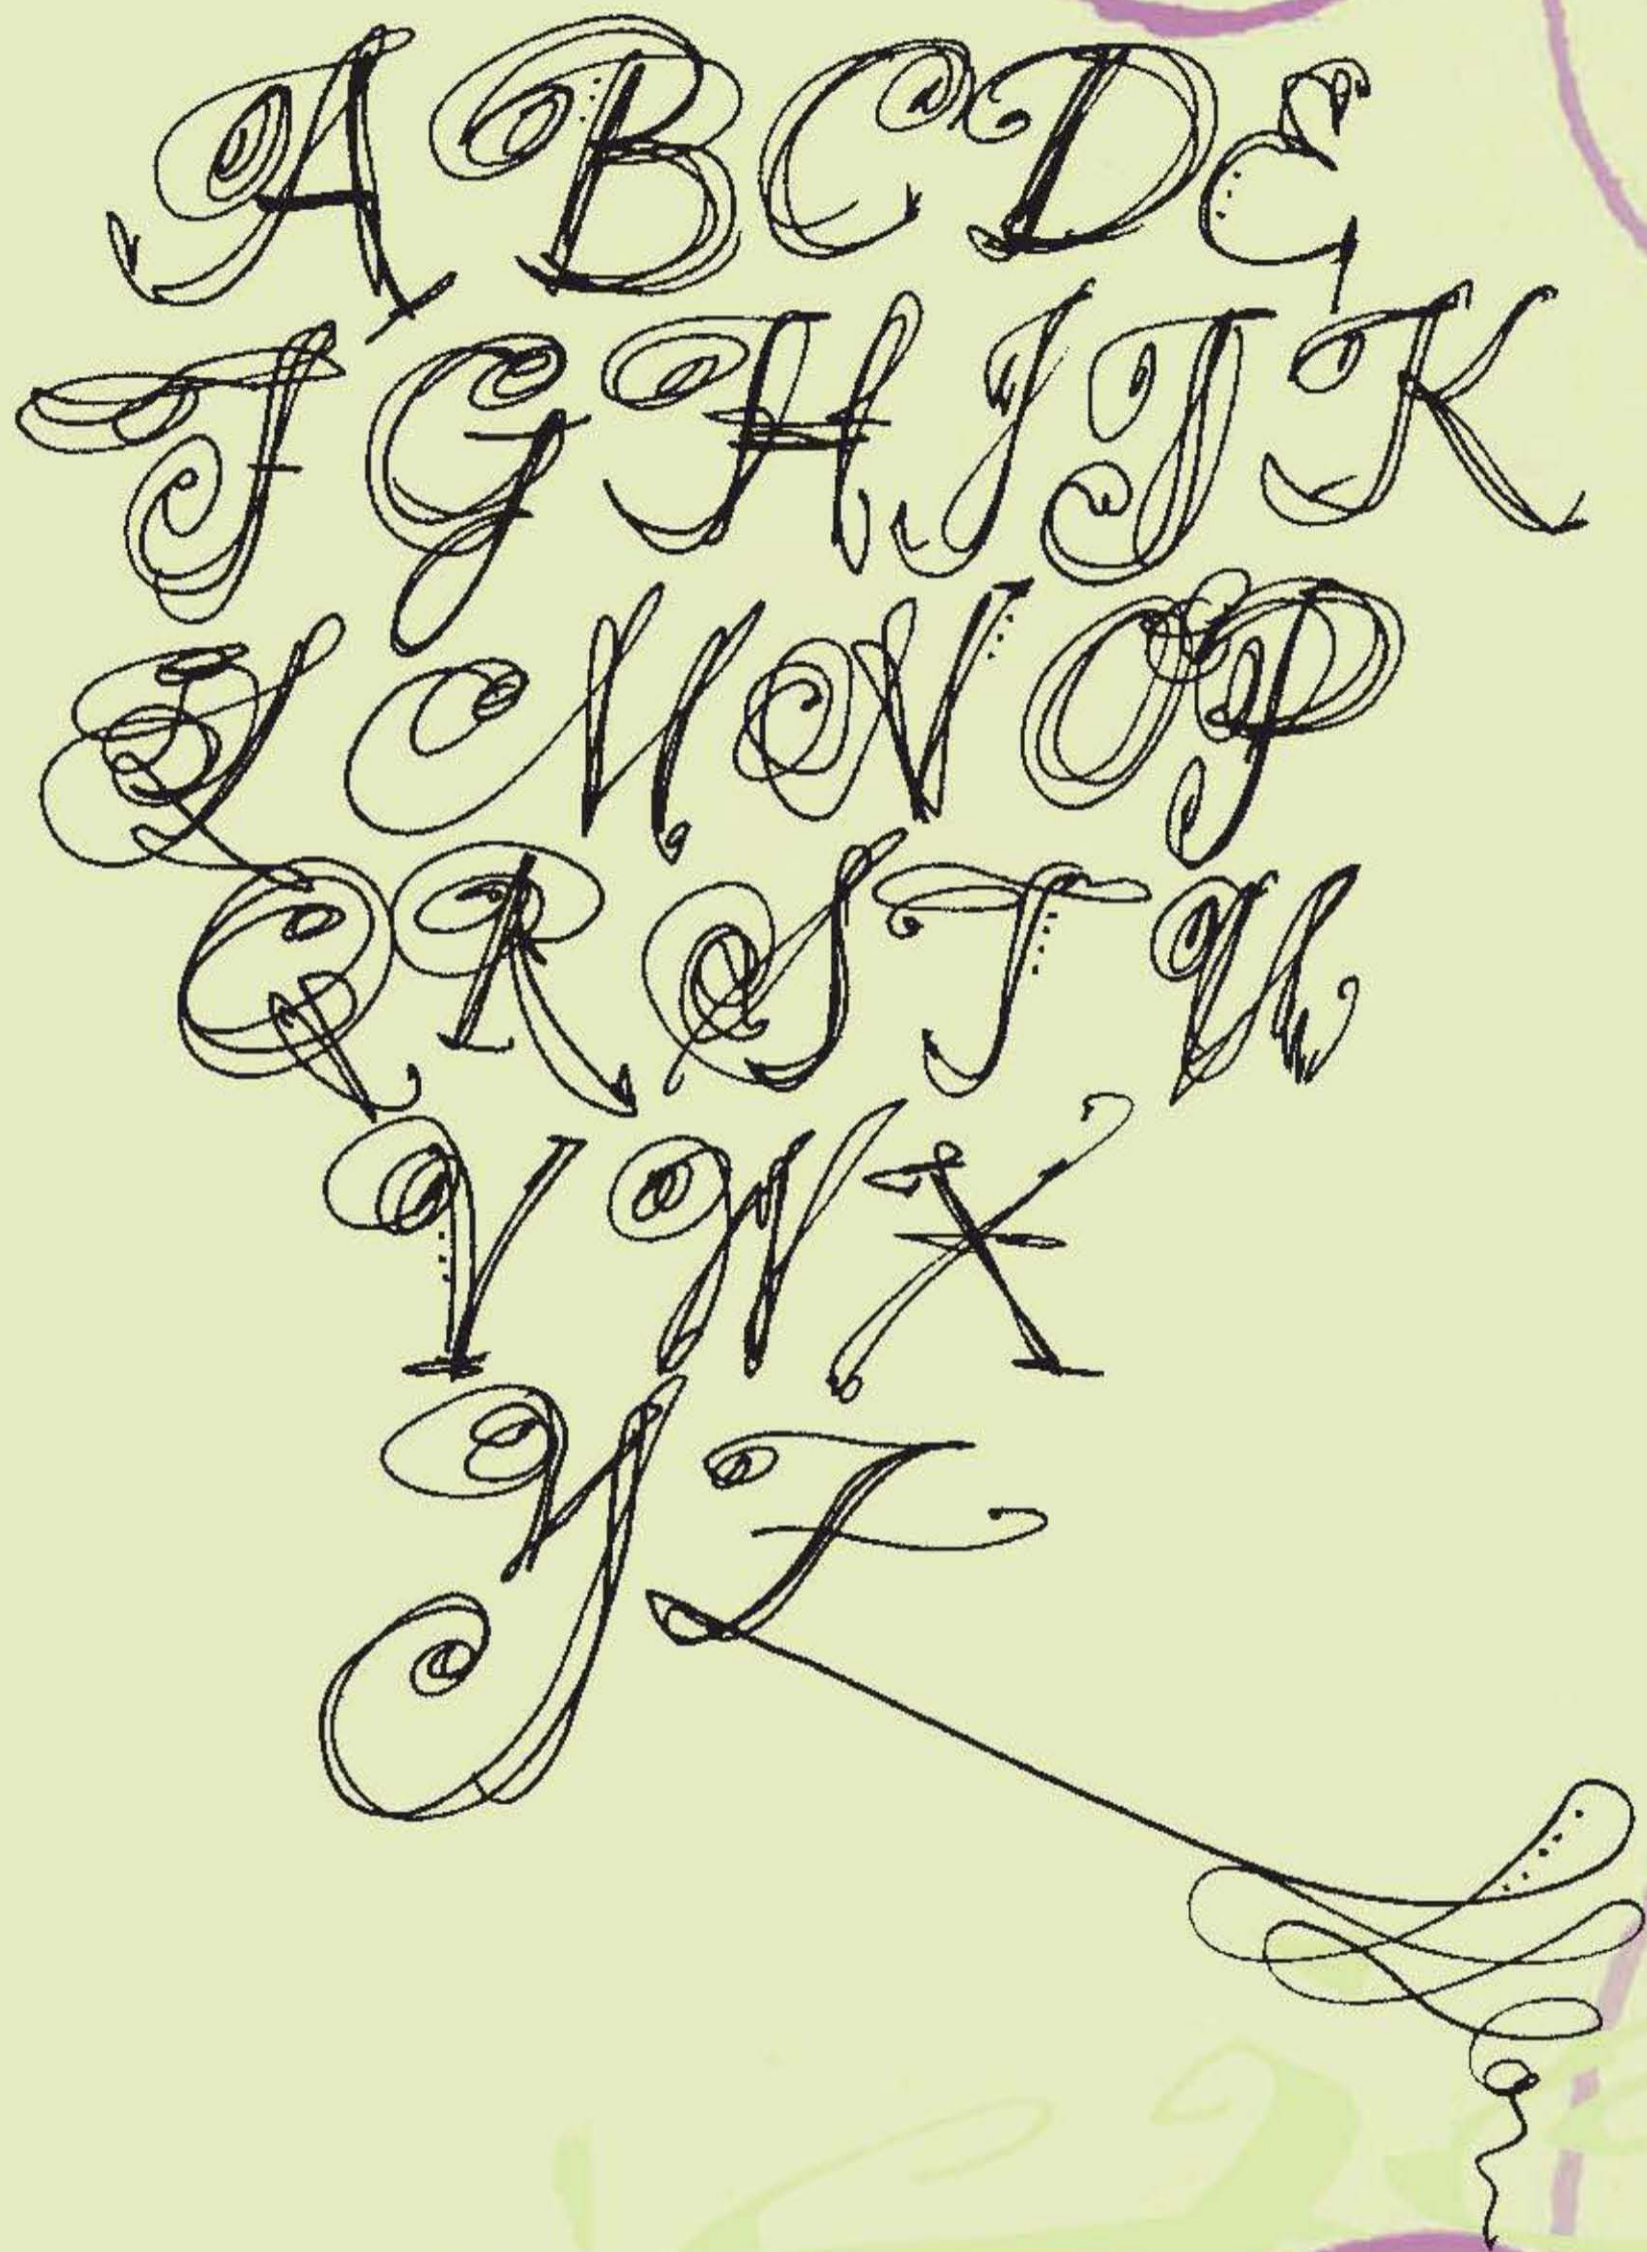 ABCDE
FGHIJK
LMNOP
QRSTU
VWX
YZ